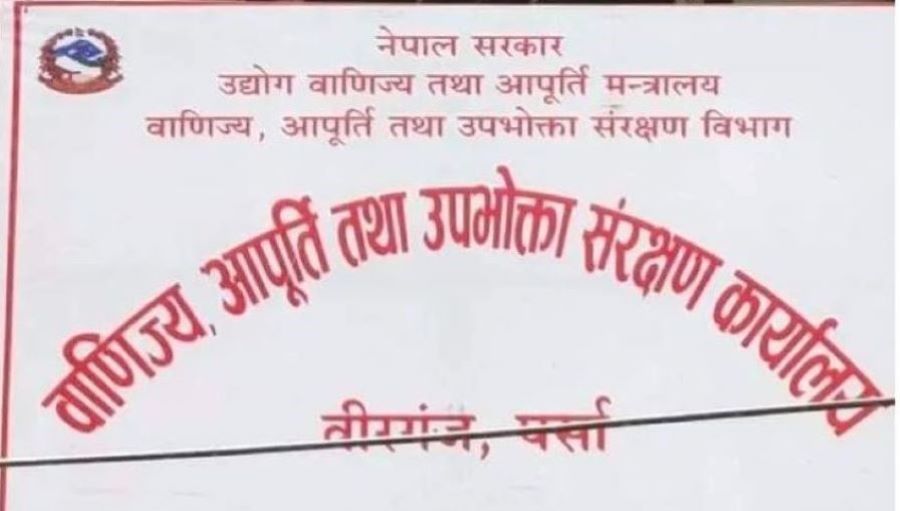 नेपाल सरकार
उद्योग वाणिज्य तथा आपूर्ति मन्त्रालय
वाणिज्य, आपूर्ति तथा उपभोक्ता संरक्षण विभाग
वाणिज्य, आपूर्ति तथा उपभोक्ता संरक्षण कार्यालय
वीरगंज, पर्सा